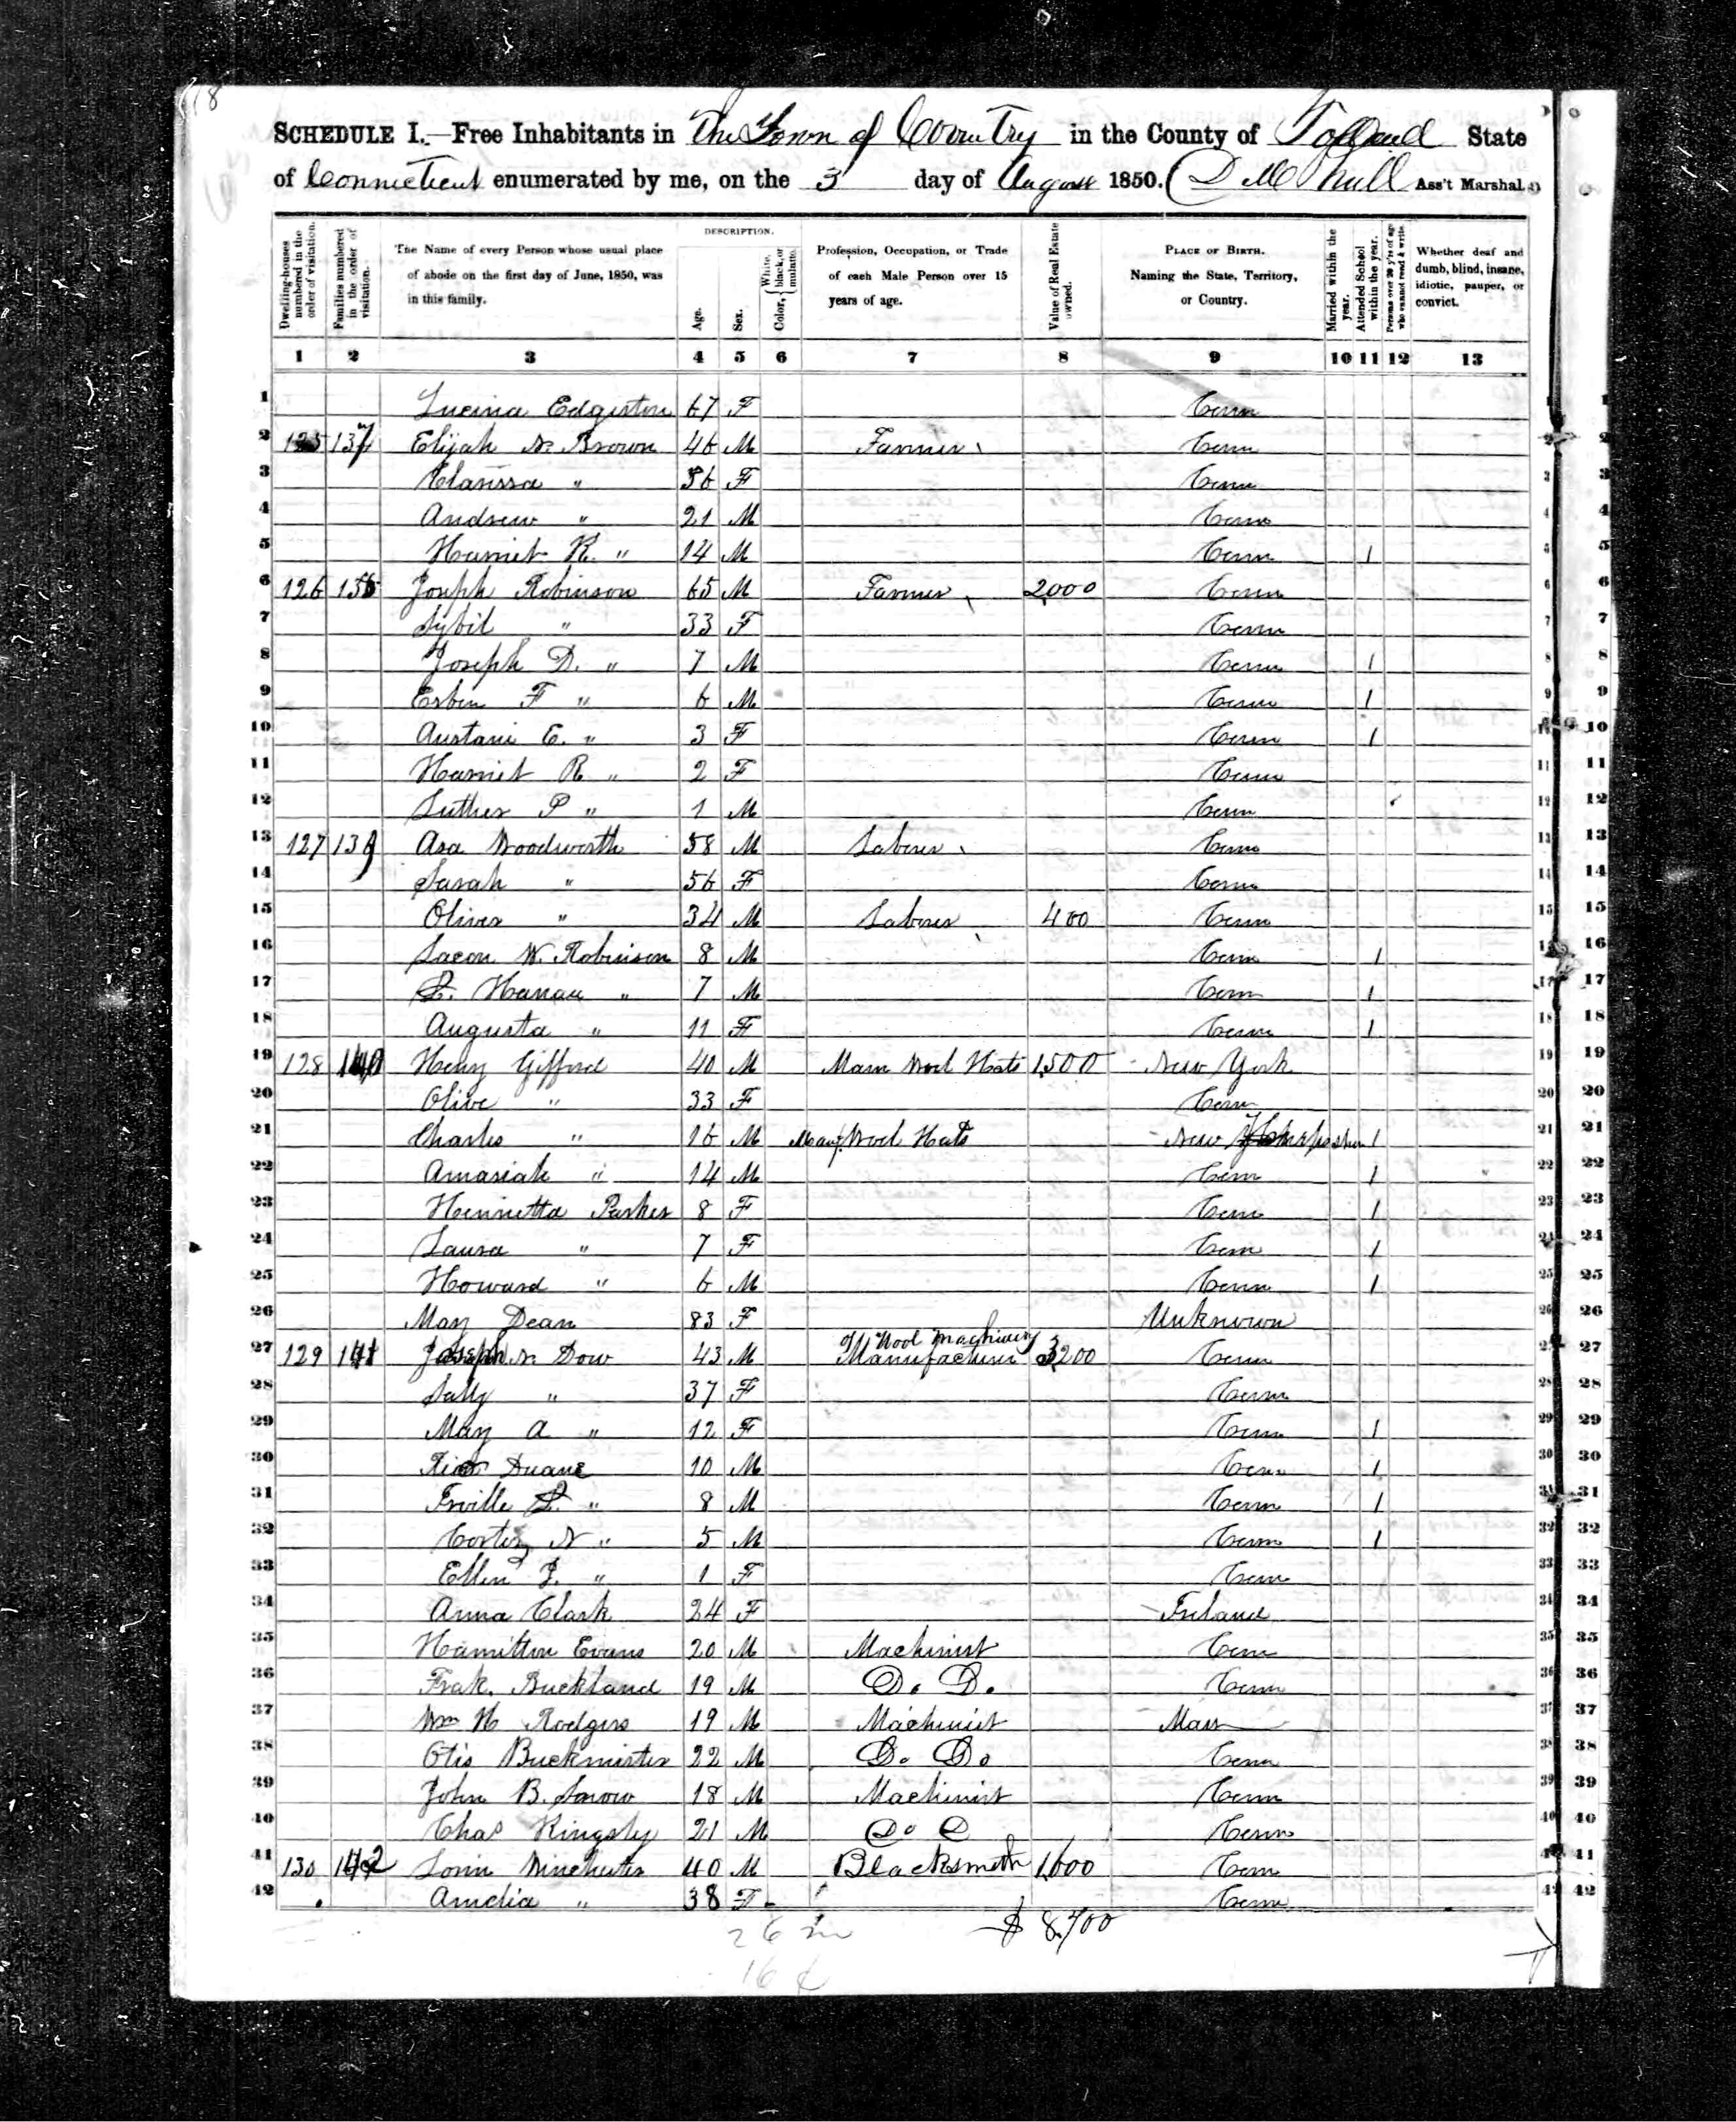 118
SCHEDULE I.—Free Inhabitants in The Town of Coventry in the County of Tolland State
of Connecticut enumerated by me, on the 3 day of August 1850. Ass't Marshal.
Dwelling-houses numbered in the order of visitation.
Families numbered in the order of visitation.
The Name of every Person whose usual place of abode on the first day of June, 1850, was in this family.
DESCRIPTION.
Age.
Sex.
Color, { White, black, or mulatto.
Profession, Occupation, or Trade of each Male Person over 15 years of age.
Value of Real Estate owned.
PLACE OF BIRTH. Naming the State, Territory, or Country.
Married within the year.
Attended School within the year.
Persons over 20 y'rs of age who cannot read & write.
Whether deaf and dumb, blind, insane, idiotic, pauper, or convict.
1 2 3 4 5 6 7 8 9 10 11 12 13
1 Lucina Edgerton 67 F Conn 1
2 125 137 Elijah N. Brown 46 M Farmer Conn 2
3 Clarissa " 36 F Conn 3
4 Andrew " 21 M Conn 4
5 Harriet R. " 14 M Conn 1 5
6 126 138 Joseph Robinson 65 M Farmer 2,000 Conn 6
7 Sybil " 33 F Conn 7
8 Joseph D. " 7 M Conn 1 8
9 F " 6 M Conn 1 9
10 E. " 3 F Conn 1 10
11 Harriet R. " 2 F Conn 11
12 Luther P " 1 M Conn 12
13 127 139 Asa Woodworth 58 M Laborer Conn 13
14 Sarah " 56 F Conn 14
15 Oliver " 34 M Laborer 400 Conn 15
16 W. Robinson 8 M Conn 1 16
17 " 7 M Conn 1 17
18 Augusta " 11 F Conn 1 18
19 128 140 Henry Gifford 40 M Man Wool Hats 1,500 New York 19
20 Olive " 33 F Conn 20
21 Charles " 16 M Manf. Wool Hats New 1 21
22 Amariah " 14 M Conn 1 22
23 Hennetta Parker 8 F Conn 1 23
24 Laura " 7 F Conn 1 24
25 Howard " 6 M Conn 1 25
26 Mary Dean 83 F Unknown 26
of Wool Machinery
27 129 141 Joseph N. Dow 43 M Manufacturer 3,200 Conn 27
28 Sally " 37 F Conn 28
29 Mary A " 12 F Conn 1 29
30 Duane 10 M Conn 1 30
31 " 8 M Conn 1 31
32 Cortez N " 5 M Conn 1 32
33 Ellen J. " 1 F Conn 33
34 Anna Clark 24 F Ireland 34
35 Hamilton Evans 20 M Machinist Conn 35
36 Frak. Buckland 19 M D. D. Conn 36
37 Wm H Rodgers 19 M Machinist Mass 37
38 Otis Buckminster 22 M Do Do Conn 38
39 John B. Snow 18 M Machinist Conn 39
40 Chas Kingsly 21 M Conn 40
41 130 142 Lorin Winchester 40 M Blacksmith 1,600 Conn 41
42 Amelia " 38 F Conn 42
26 m $ 8,700
16 f